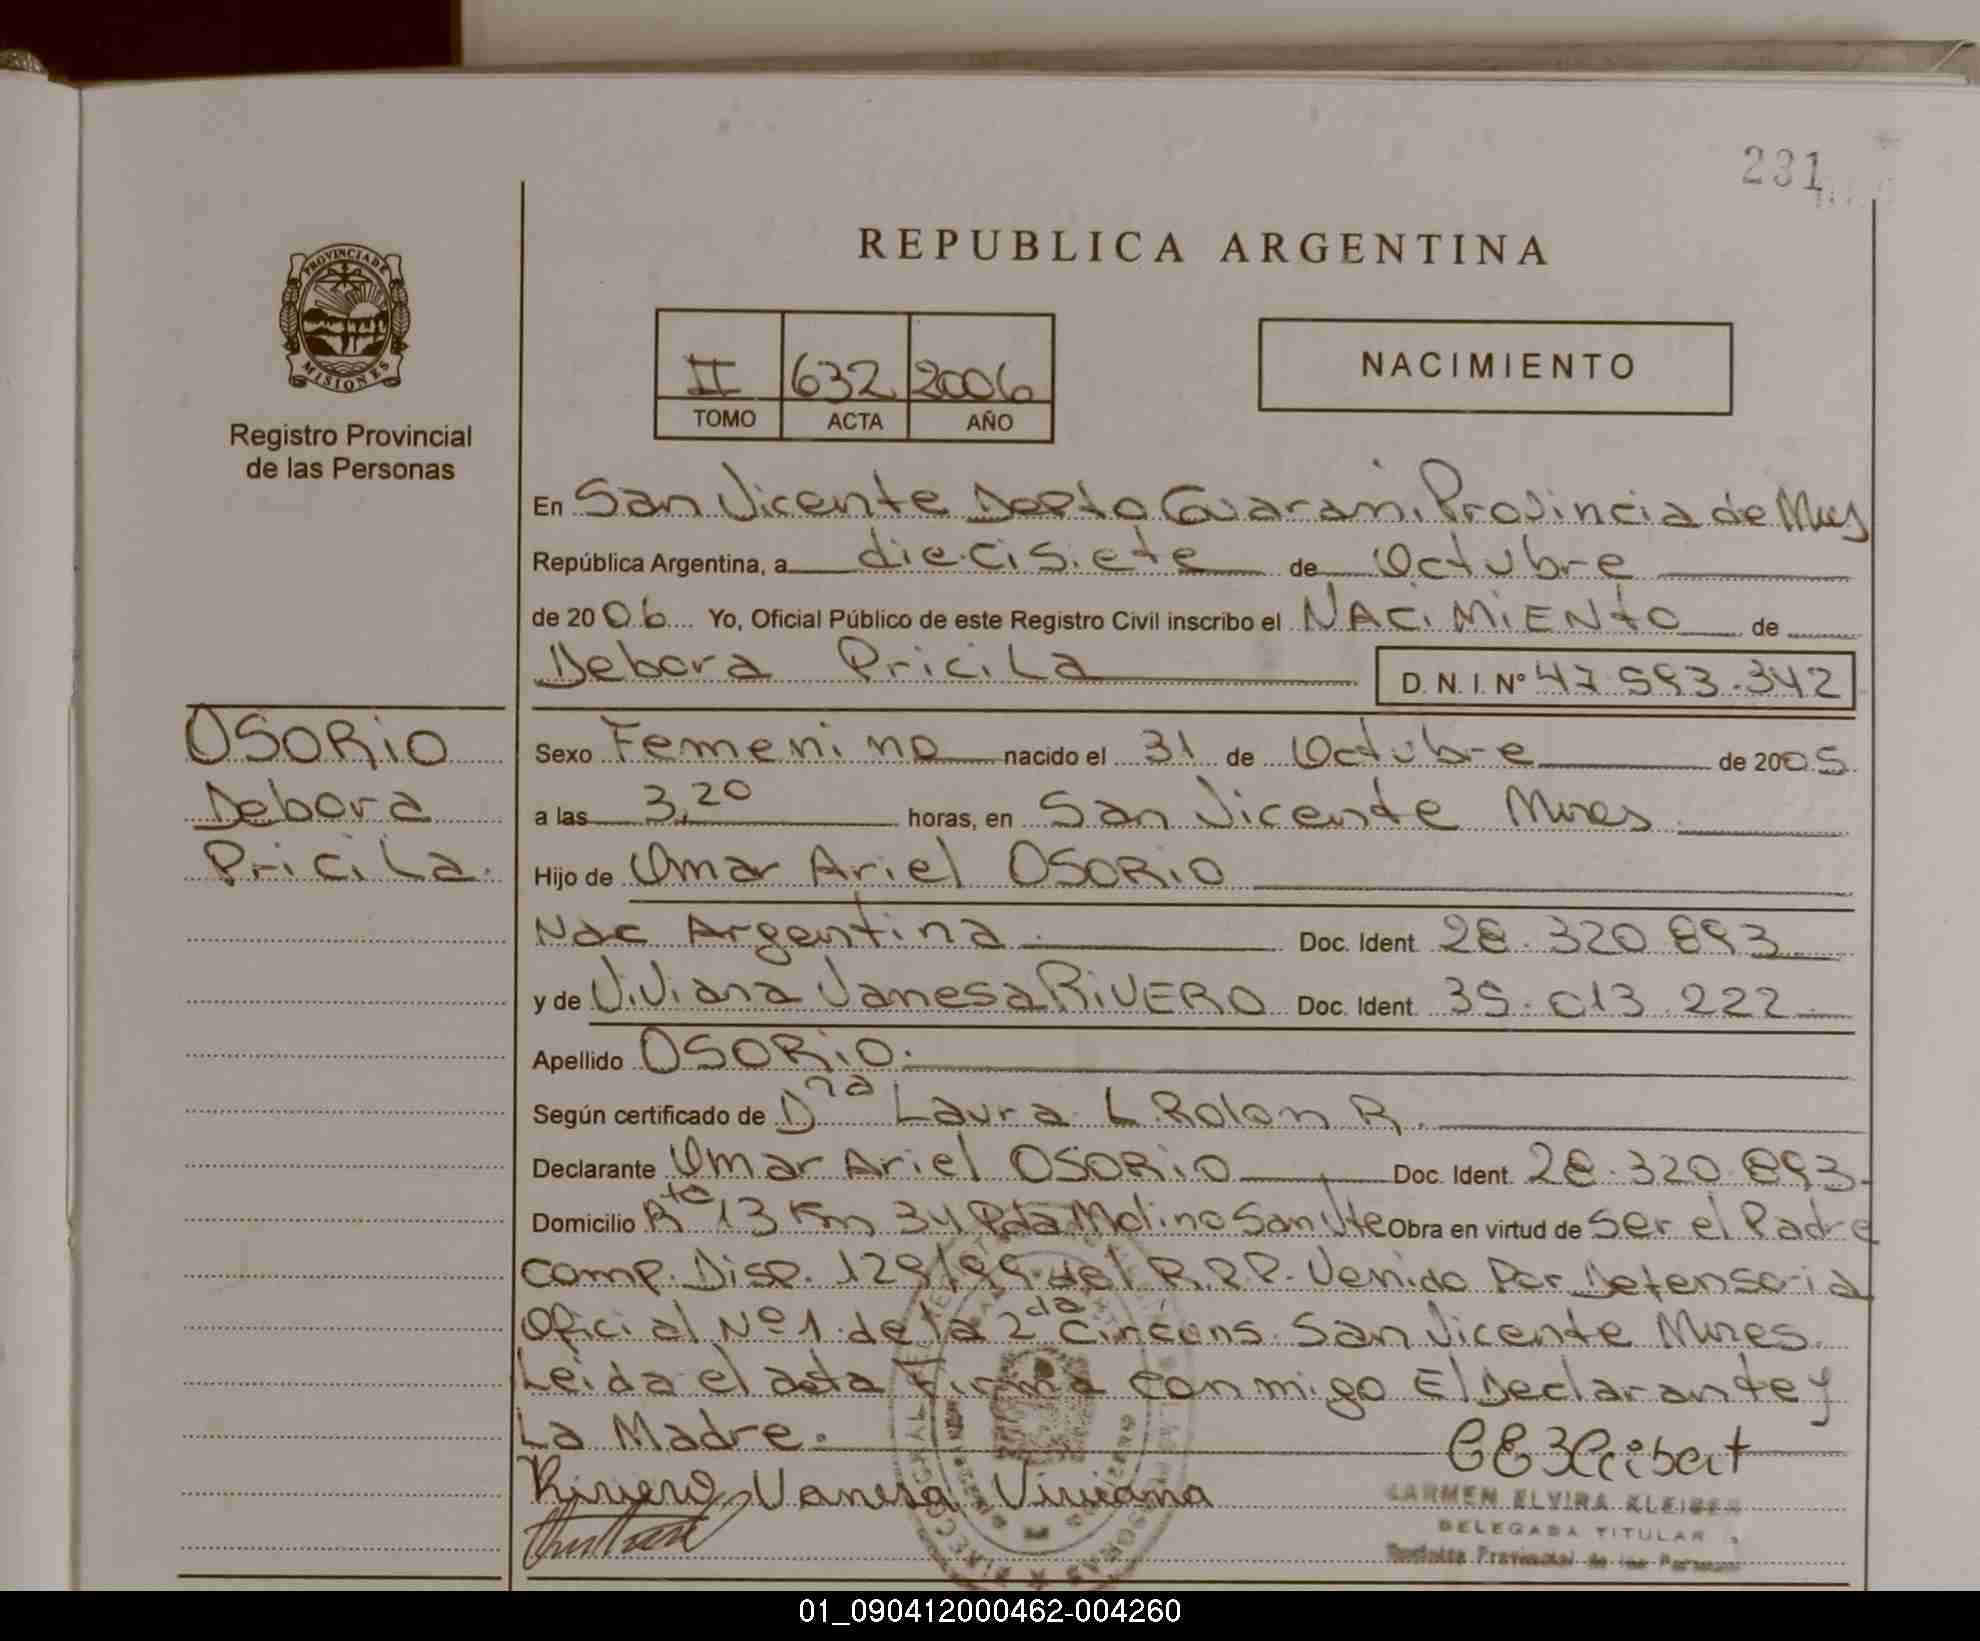 231
REPUBLICA ARGENTINA
PROVINCIA DE
MISIONES
Registro Provincial
de las Personas
II 632 2006
TOMO ACTA AÑO
NACIMIENTO
En San Vicente Depto Guarani. Provincia de Mnes
República Argentina, a diecisiete de Octubre
de 2006 Yo, Oficial Público de este Registro Civil inscribo el NACIMIENTO de
Debora Pricila D. N. I. Nº 47.593.342
OSORIO
Debora
Pricila.
Sexo Femenino nacido el 31 de Octubre de 2005
a las 3,20 horas, en San Vicente Mnes
Hijo de Omar Ariel OSORIO
Nac Argentina Doc. Ident. 28.320.893
y de Viviana Vanesa RIVERO Doc. Ident. 35.013.222
Apellido OSORIO.
Según certificado de Dra Laura L Rolon R.
Declarante Omar Ariel OSORIO Doc. Ident. 28.320.893
Domicilio Rta 13 Km 34 Pda Molino San Vte Obra en virtud de Ser el Padre
comp. Disp. 129/99 del R.P.P. Venido Por Defensoria
Oficial Nº 1 de la 2da Circuns. San Vicente Mnes.
Leida el acta Firma conmigo El Declarante y
La Madre.
Rivero Vanesa Viviana
CARMEN ELVIRA KLEIBER
DELEGADA TITULAR
Registro Provincial de las Personas
01_090412000462-004260